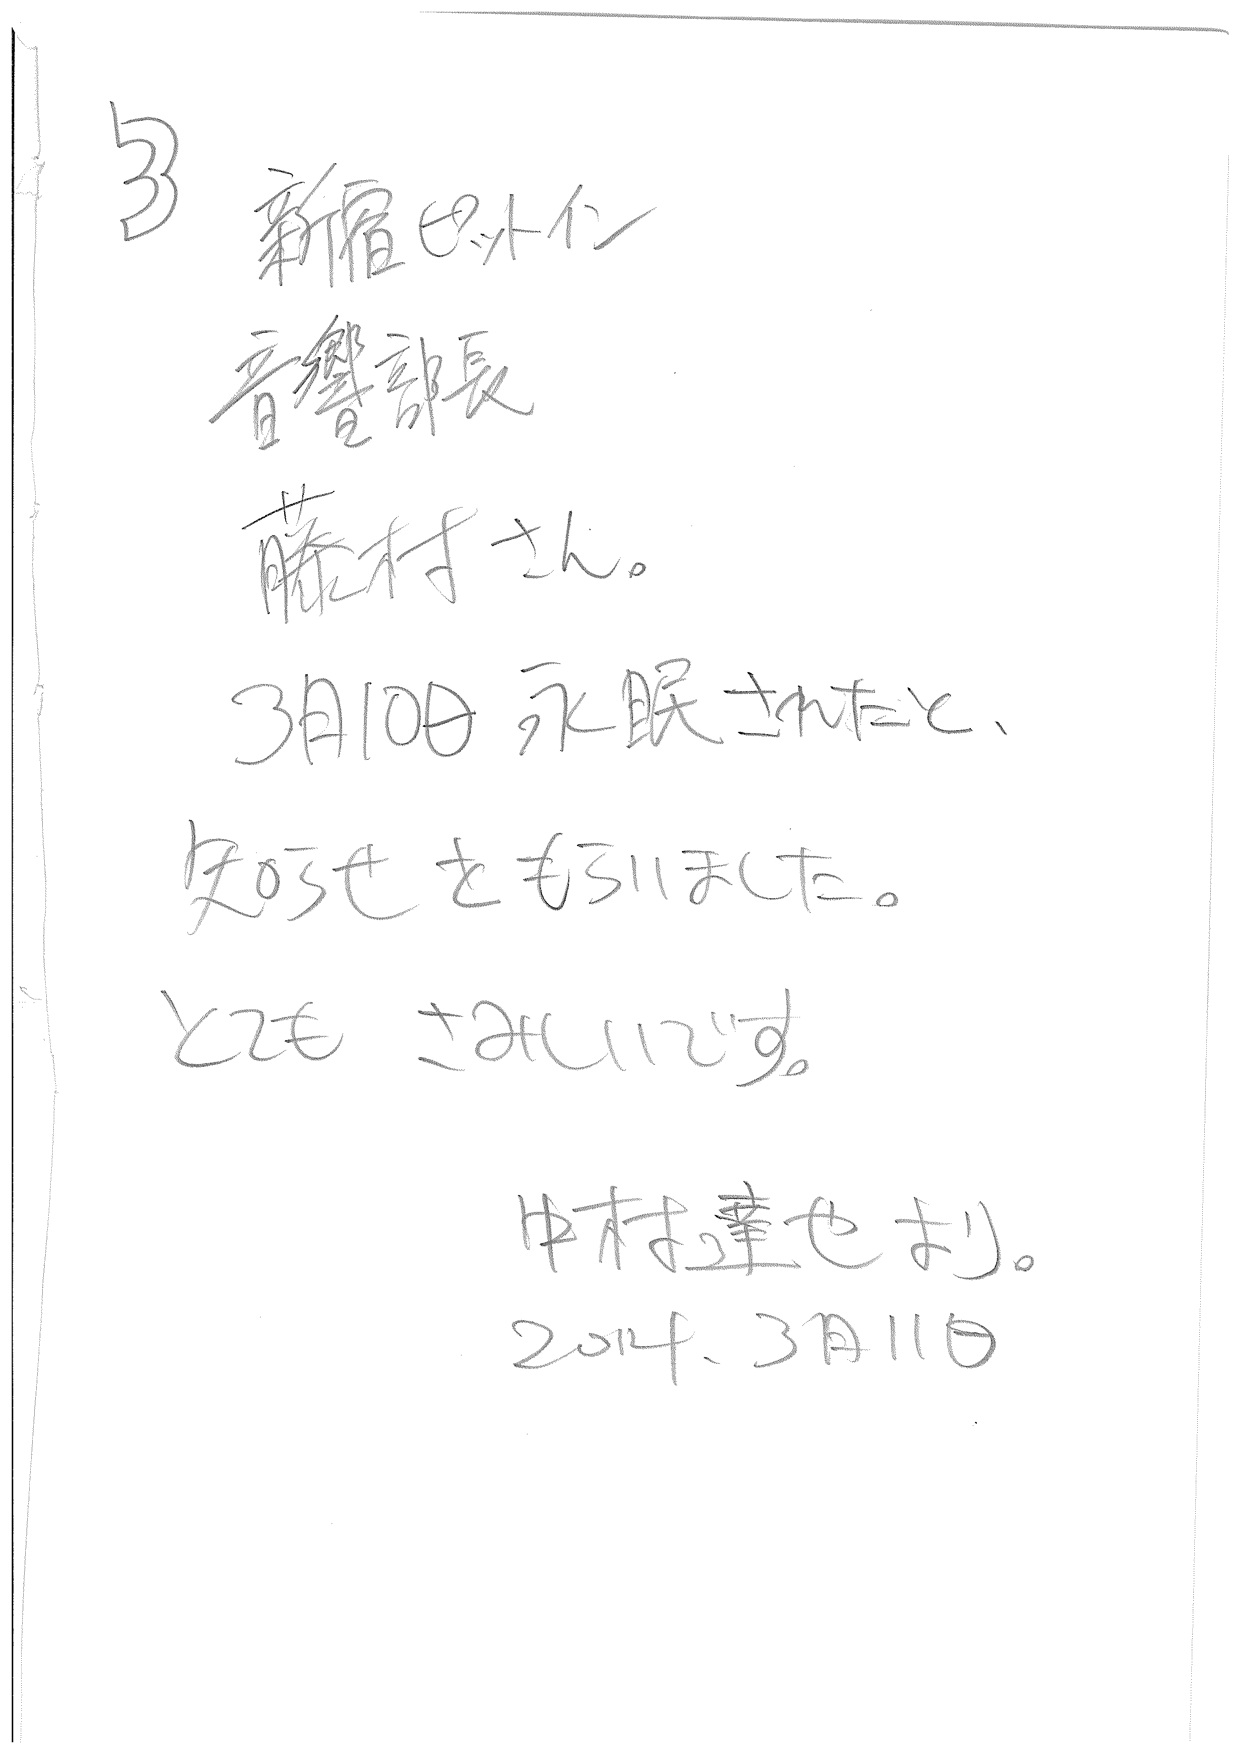 3
新宿ピットイン
音響部長
藤村さん。
3月10日 永眠されたと、
知らせをもらいました。
とても さみしいです。
中村達也より。
2014、3月11日